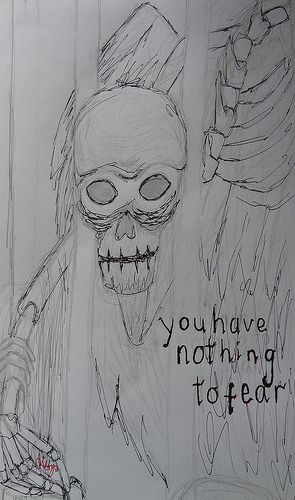 you have
nothing
to fear